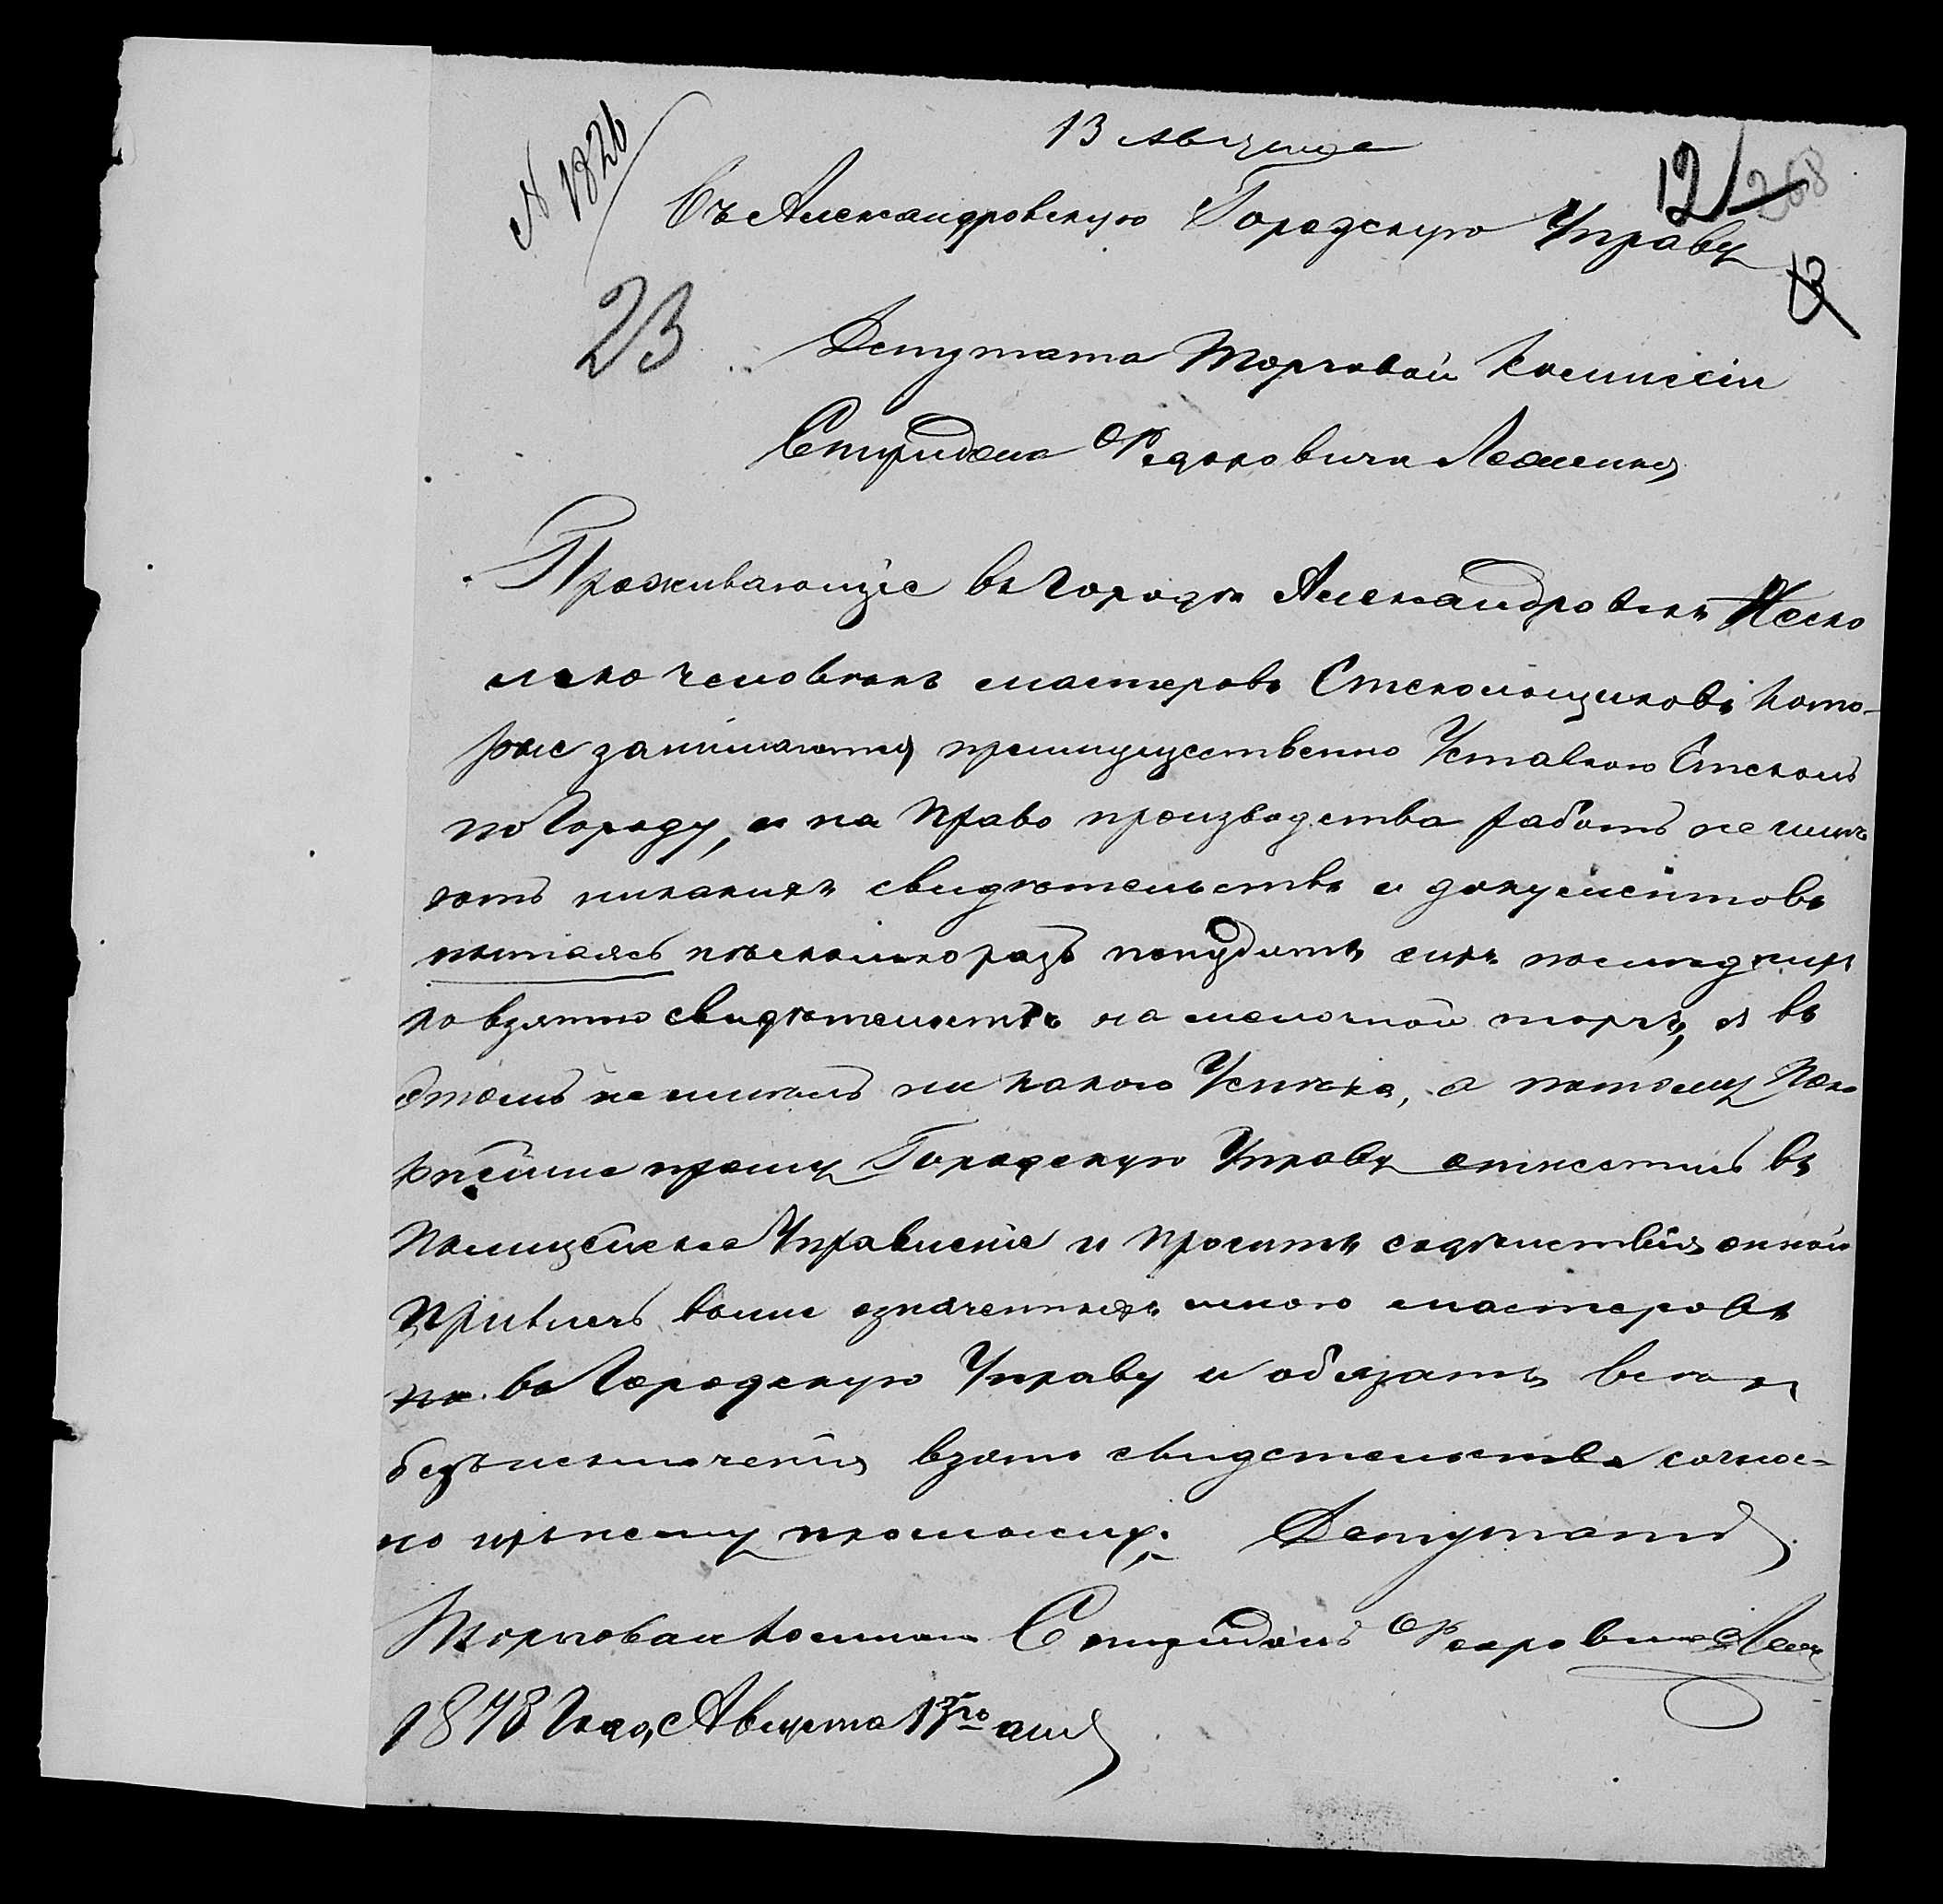 13 Августа
№ 1826
12 268
Въ Александровскую Городскую Управу
13
23
Депутата Торговой Комисіи
Спиридона Федоровича
Проживающіе въ городѣ Александровскѣ Неско
лько человѣкъ мастеровъ Стекольщиковъ кото-
рые занимаются преимущественно Уставкою Стеколъ
по Городу, и на право производства работъ не имѣ
ютъ никакихъ свидѣтельствъ и документовъ
пытаясь нѣсколько разъ понудить сихъ последнихъ
ко взятію свидѣтельствъ на мелочной торгъ, я въ
этомъ не имѣлъ ни какого Успѣха, а потому Поко
рнѣйше прошу Городскую Управу отнестись въ
Полицейское Управленіе и просить содѣйствія онной
Привлечь выше означенныхъ мною мастеровъ
на въ Городскую Управу и обязать всехъ
безъ исключенія взять свидетельства соглас-
но промыслу. Депутатъ
Торговой Комисіи Спиридонъ Федоровичъ
1878 Года, Августа 13го дня